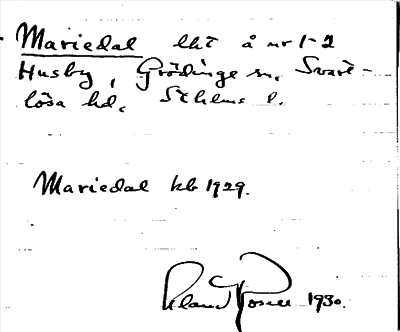 Mariedal lht å nr 1-2
Husby, Grödinge sn, Svart-
lösa hd, Sthlms l.
Mariedal kb 1929.
Roland Rosell 1930.